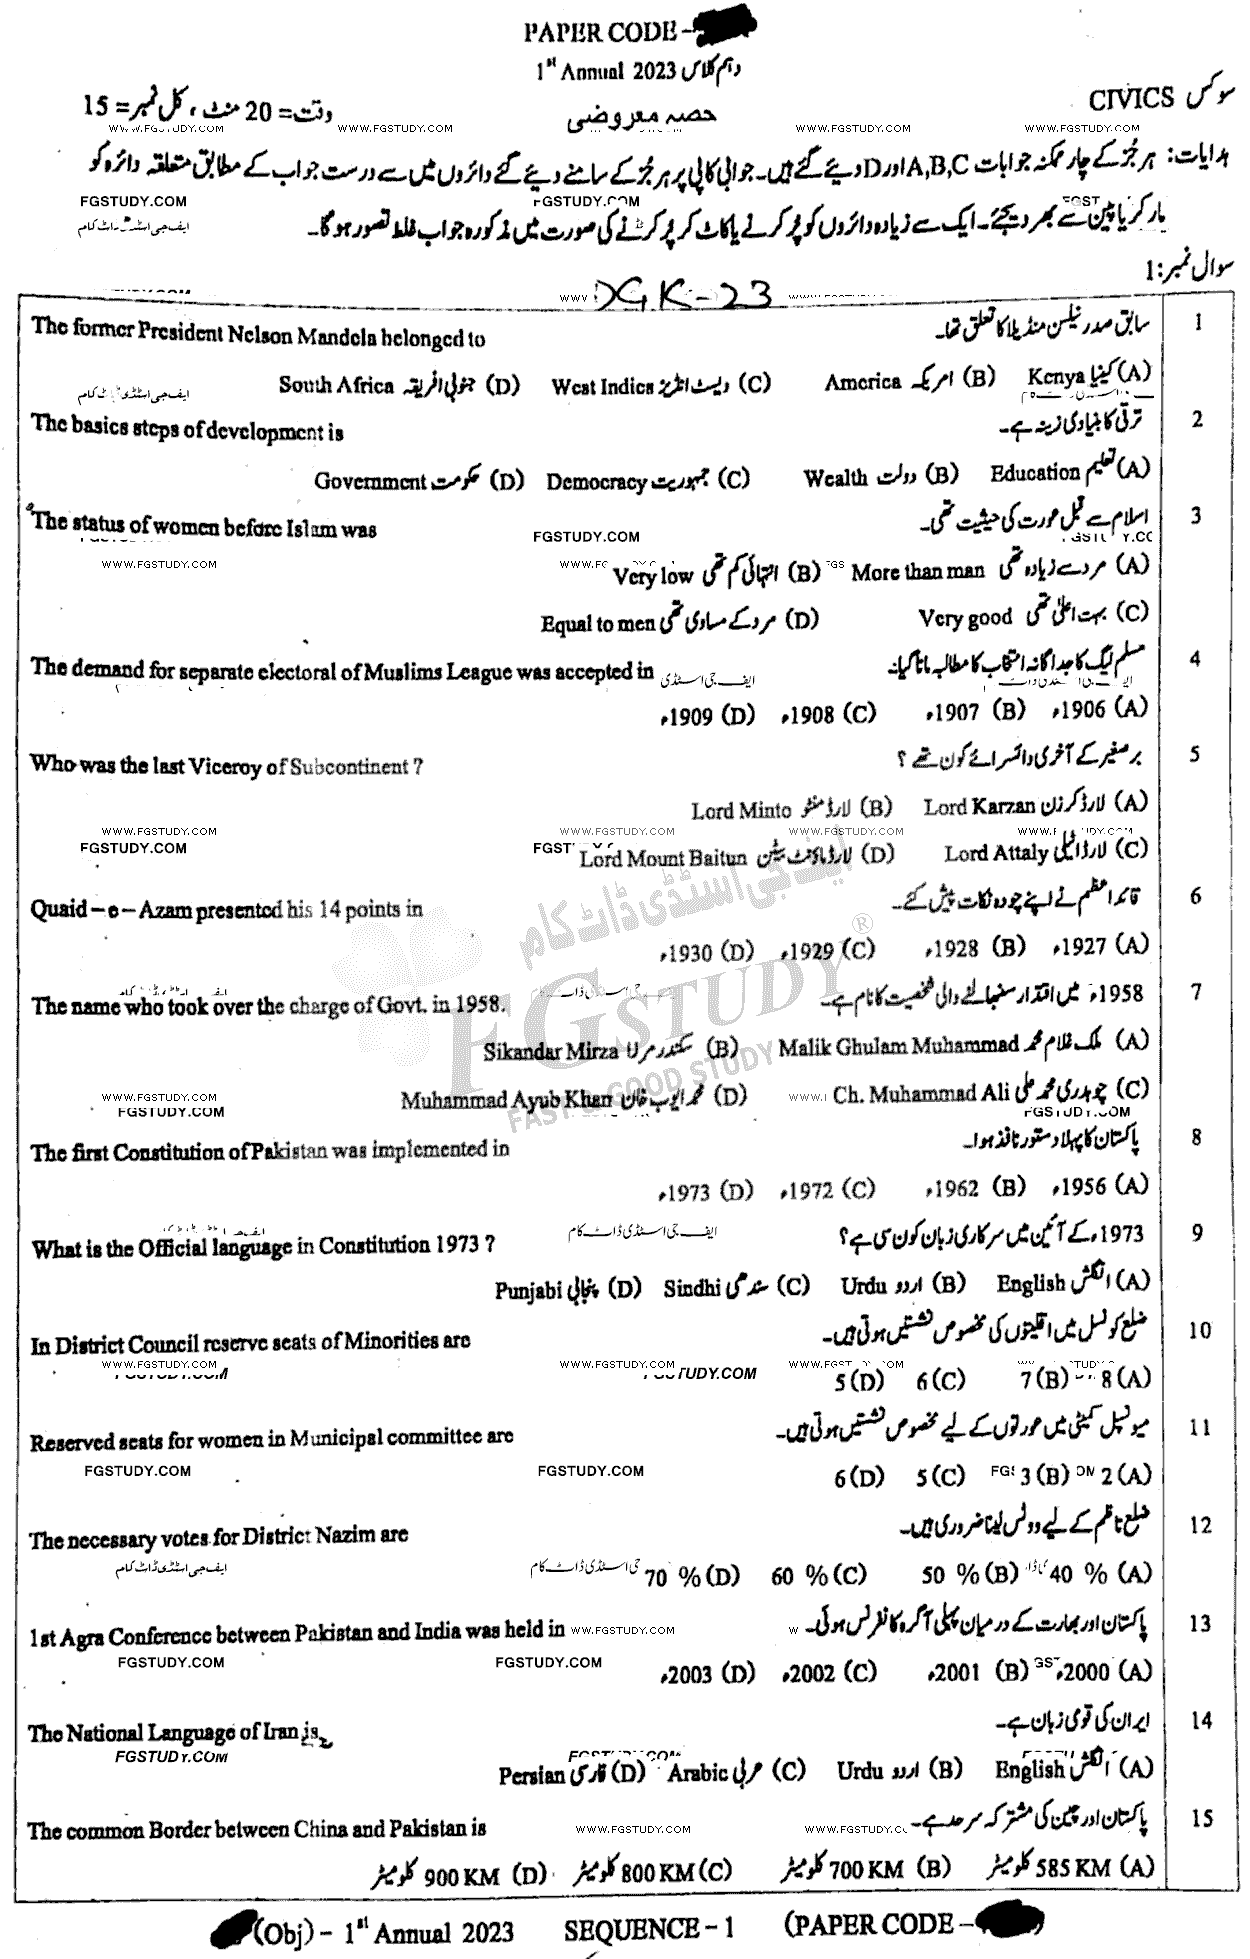 PAPER CODE -
1st Annual 2023 دہم کلاس
سوکس CIVICS
حصہ معروضی
وقت = 20 منٹ ، کل نمبر = 15
ہدایات: ہر جُز کے چار ممکنہ جوابات A,B,C اور D دیئے گئے ہیں۔ جوابی کاپی پر ہر جُز کے سامنے دیئے گئے دائروں میں سے درست جواب کے مطابق متعلقہ دائرہ کو
مارکر یا پین سے بھر دیجئے۔ ایک سے زیادہ دائروں کو پُر کرنے یا کاٹ کر پُر کرنے کی صورت میں مذکورہ جواب غلط تصور ہوگا۔
سوال نمبر: 1
DGK-23
1 سابق صدر نیلسن منڈیلا کا تعلق تھا۔ The former President Nelson Mandela belonged to
(A) کینیا Kenya (B) امریکہ America (C) ویسٹ انڈیز West Indies (D) جنوبی افریقہ South Africa
2 ترقی کا بنیادی زینہ ہے۔ The basics steps of development is
(A) تعلیم Education (B) دولت Wealth (C) جمہوریت Democracy (D) حکومت Government
3 اسلام سے قبل عورت کی حیثیت تھی۔ The status of women before Islam was
(A) مرد سے زیادہ تھی More than man (B) انتہائی کم تھی Very low
(C) بہت اعلیٰ تھی Very good (D) مرد کے مساوی تھی Equal to men
4 مسلم لیگ کا جداگانہ انتخاب کا مطالبہ مانا گیا۔ The demand for separate electoral of Muslims League was accepted in
(A) 1906ء (B) 1907ء (C) 1908ء (D) 1909ء
5 برصغیر کے آخری وائسرائے کون تھے ؟ Who was the last Viceroy of Subcontinent ?
(A) لارڈ کرزن Lord Karzan (B) لارڈ منٹو Lord Minto
(C) لارڈ اٹیلی Lord Attaly (D) لارڈ ماؤنٹ بیٹن Lord Mount Baitun
6 قائداعظم نے اپنے چودہ نکات پیش کئے۔ Quaid – e – Azam presented his 14 points in
(A) 1927ء (B) 1928ء (C) 1929ء (D) 1930ء
7 1958ء میں اقتدار سنبھالنے والی شخصیت کا نام ہے۔ The name who took over the charge of Govt. in 1958.
(A) ملک غلام محمد Malik Ghulam Muhammad (B) سکندر مرزا Sikandar Mirza
(C) چوہدری محمد علی Ch. Muhammad Ali (D) محمد ایوب خان Muhammad Ayub Khan
8 پاکستان کا پہلا دستور نافذ ہوا۔ The first Constitution of Pakistan was implemented in
(A) 1956ء (B) 1962ء (C) 1972ء (D) 1973ء
9 1973ء کے آئین میں سرکاری زبان کون سی ہے؟ What is the Official language in Constitution 1973 ?
(A) انگلش English (B) اردو Urdu (C) سندھی Sindhi (D) پنجابی Punjabi
10 ضلع کونسل میں اقلیتوں کی مخصوص نشستیں ہوتی ہیں۔ In District Council reserve seats of Minorities are
(A) 8 (B) 7 (C) 6 (D) 5
11 میونسپل کمیٹی میں عورتوں کے لیے مخصوص نشستیں ہوتی ہیں۔ Reserved seats for women in Municipal committee are
(A) 2 (B) 3 (C) 5 (D) 6
12 ضلع ناظم کے لیے ووٹس لینا ضروری ہیں۔ The necessary votes for District Nazim are
(A) 40 % (B) 50 % (C) 60 % (D) 70 %
13 پاکستان اور بھارت کے درمیان پہلی آگرہ کانفرنس ہوئی۔ 1st Agra Conference between Pakistan and India was held in
(A) 2000ء (B) 2001ء (C) 2002ء (D) 2003ء
14 ایران کی قومی زبان ہے۔ The National Language of Iran is
(A) انگلش English (B) اردو Urdu (C) عربی Arabic (D) فارسی Persian
15 پاکستان اور چین کی مشترکہ سرحد ہے۔ The common Border between China and Pakistan is
(A) 585 KM کلومیٹر (B) 700 KM کلومیٹر (C) 800 KM کلومیٹر (D) 900 KM کلومیٹر
(Obj) - 1st Annual 2023 SEQUENCE - 1 (PAPER CODE - )
ایف جی اسٹڈی ڈاٹ کام
FGSTUDY ®
FAST & GOOD STUDY
WWW.FGSTUDY.COM
FGSTUDY.COM